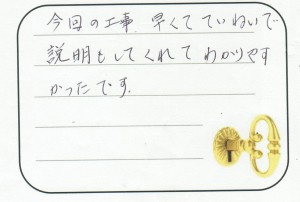 今回の工事、早くてていねいで
説明もしてくれてわかりやす
かったです。